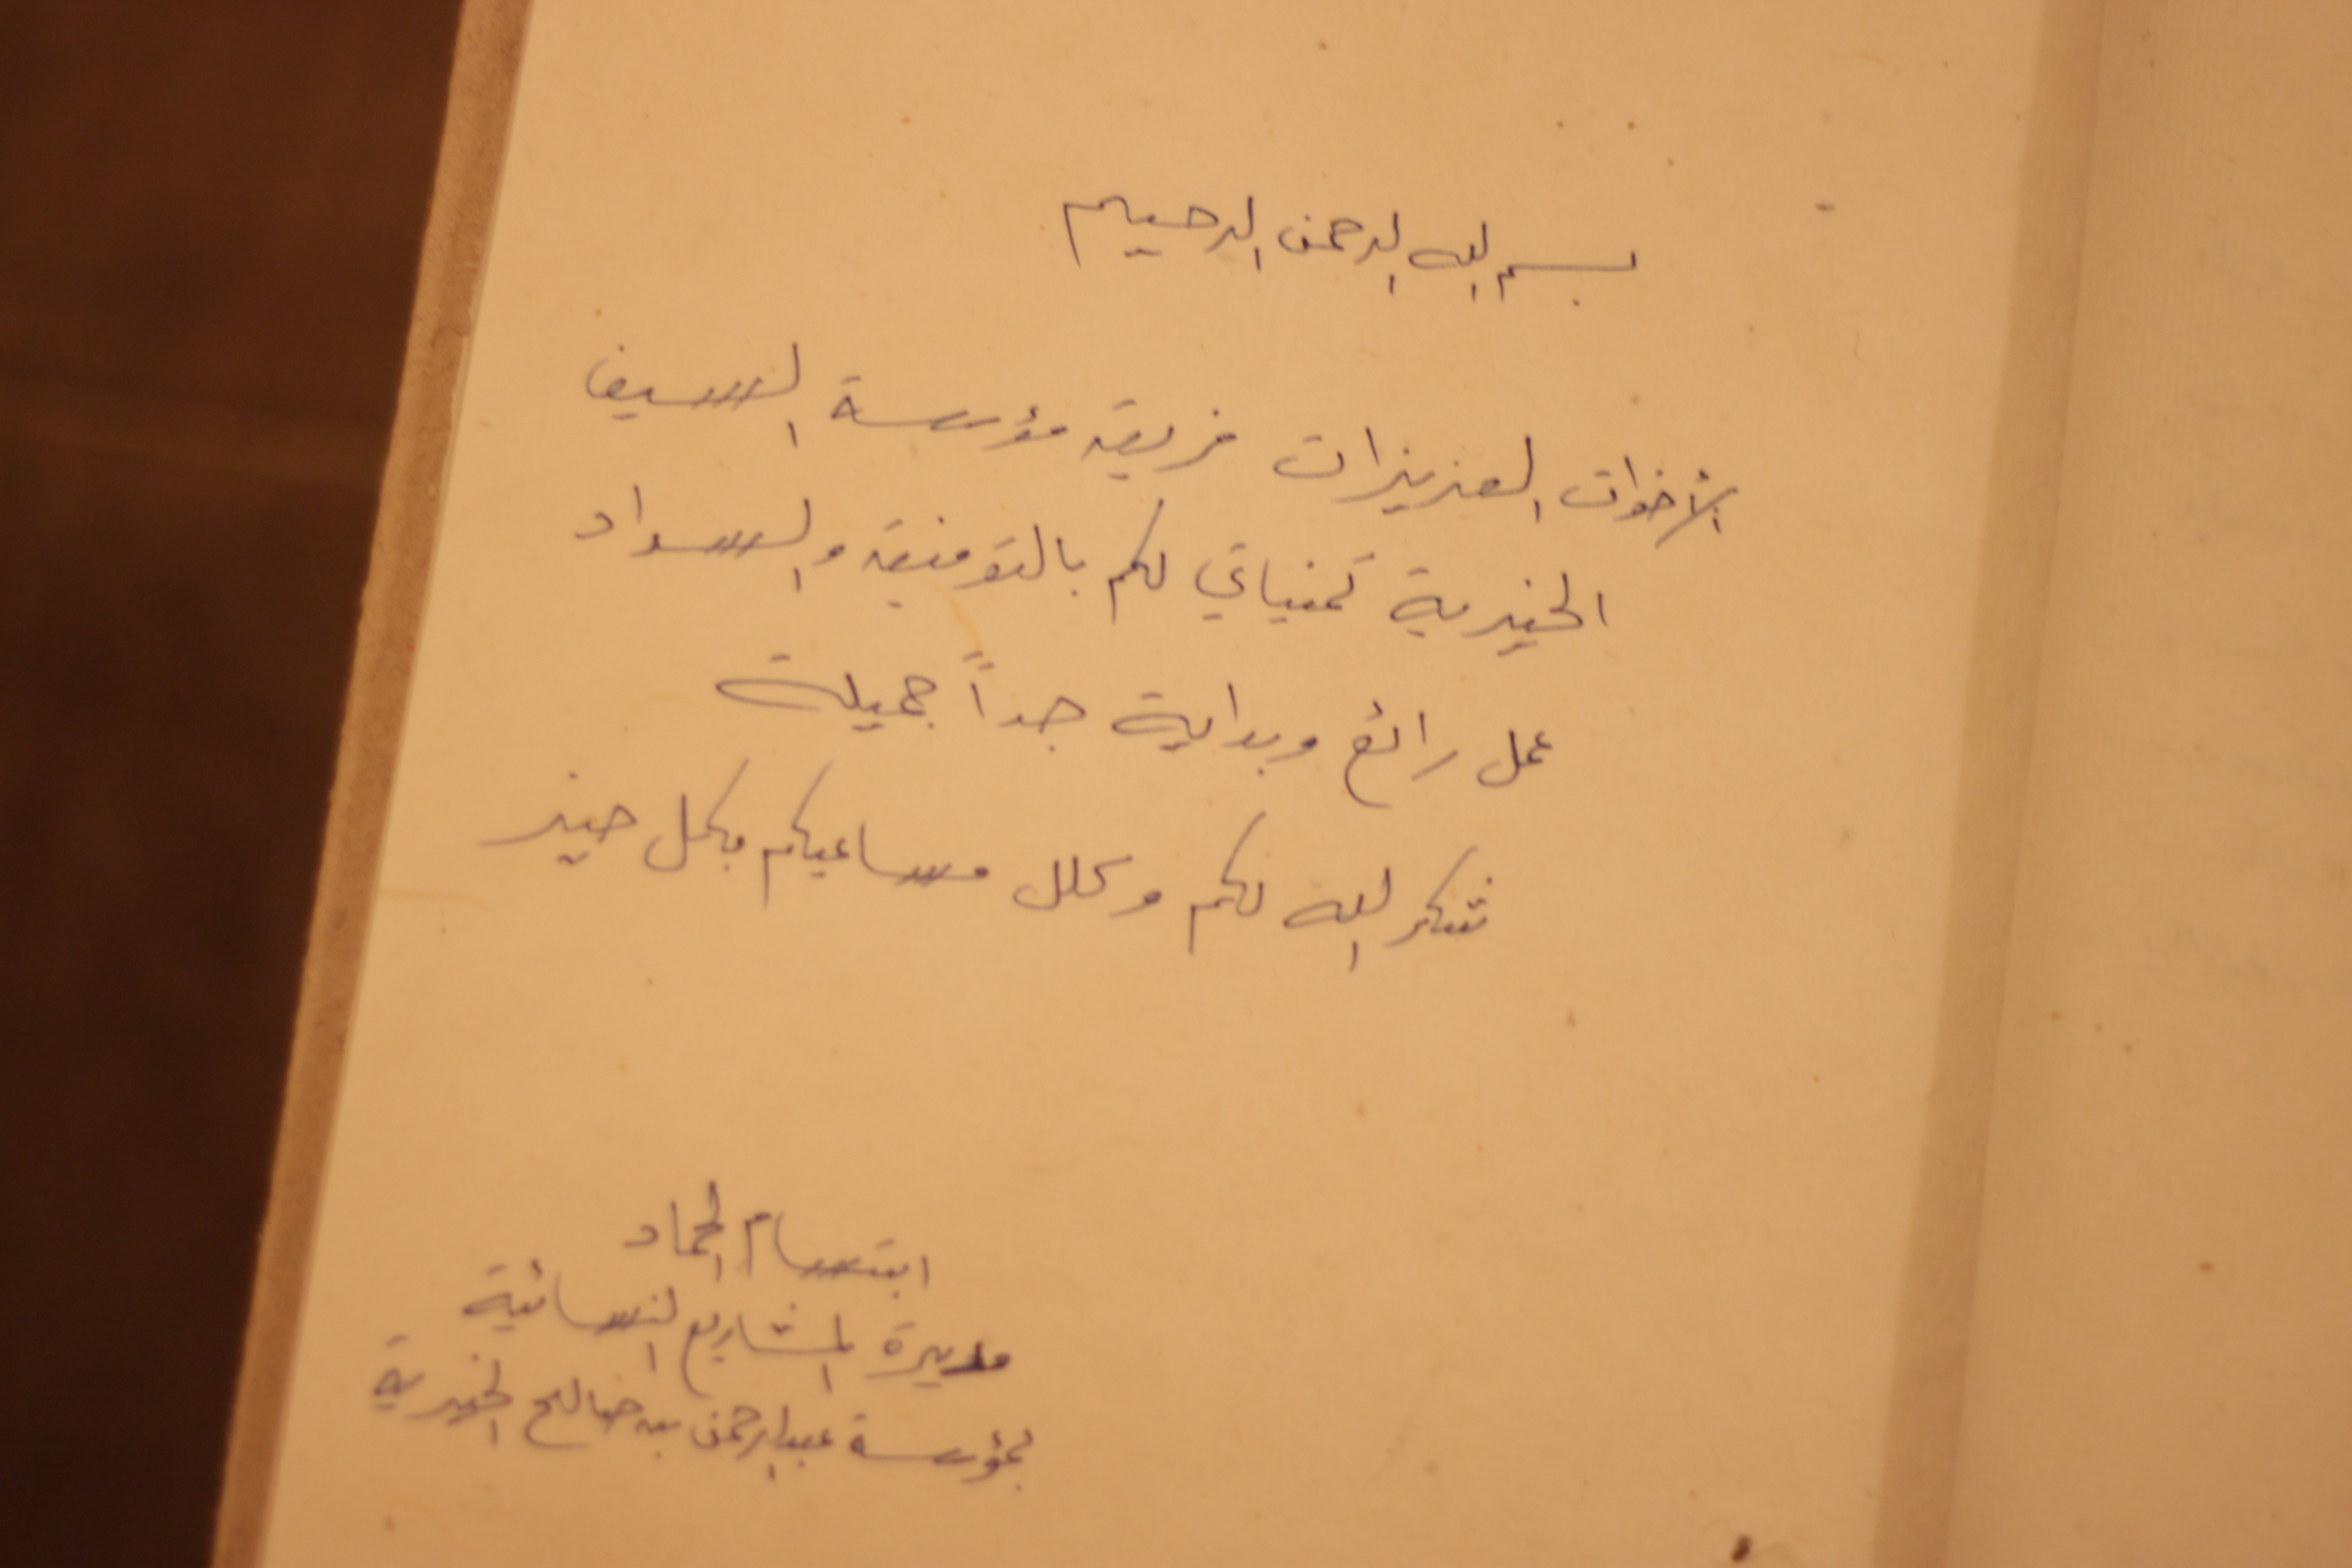 بسم الله الرحمن الرحيم
الأخوات العزيزات فريق مؤسسة السيف
الخيرية تمنياتي لكم بالتوفيق والسداد
عمل رائع وبداية جداً جميلة
شكر الله لكم وكلل مساعيكم بكل خير
ابتسام الحماد
مديرة المشاريع النسائية
بمؤسسة عبدالرحمن بن صالح الخيرية